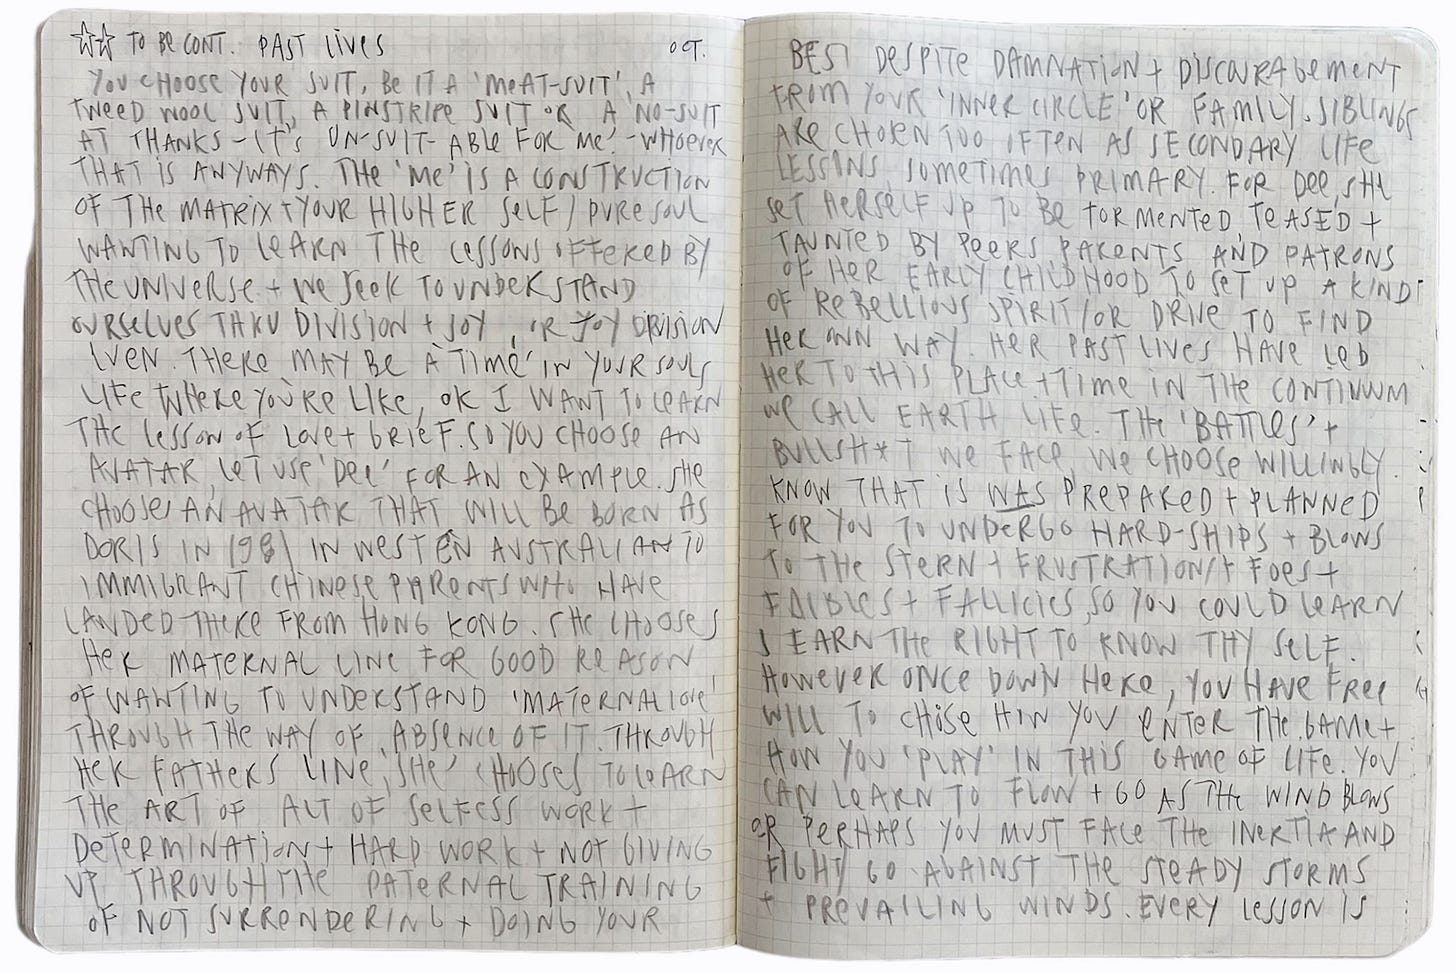 ☆☆ TO BE CONT. PAST LIVES OCT.
YOU CHOOSE YOUR SUIT, BE IT A 'MEAT-SUIT', A
TWEED WOOL SUIT, A PINSTRIPE SUIT OR A 'NO-SUIT
AT THANKS - IT'S UN-SUIT-ABLE FOR ME.' - WHOEVER
THAT IS ANYWAYS. THE 'ME' IS A CONSTRUCTION
OF THE MATRIX + YOUR HIGHER SELF / PURE SOUL
WANTING TO LEARN THE LESSONS OFFERED BY
THE UNIVERSE + WE SEEK TO UNDERSTAND
OURSELVES THRU DIVISION + JOY, OR JOY DIVISION
EVEN. THERE MAY BE A 'TIME' IN YOUR SOULS
LIFE WHERE YOU'RE LIKE, OK I WANT TO LEARN
THE LESSON OF LOVE + GRIEF. SO YOU CHOOSE AN
AVATAR, LET USE 'DEE' FOR AN EXAMPLE. SHE
CHOOSES AN AVATAR THAT WILL BE BORN AS
DORIS IN 1981 IN WESTEN AUSTRALIAN TO
IMMIGRANT CHINESE PARENTS WHO HAVE
LANDED THERE FROM HONG KONG. SHE CHOOSES
HER MATERNAL LINE FOR GOOD REASON
OF WANTING TO UNDERSTAND 'MATERNAL LOVE'
THROUGH THE WAY OF ABSENCE OF IT. THROUGH
HER FATHERS LINE, SHE CHOOSES TO LEARN
THE ART OF ALT OF SELFESS WORK +
DETERMINATION + HARD WORK + NOT GIVING
UP THROUGH THE PATERNAL TRAINING
OF NOT SURRENDERING + DOING YOUR
BEST DESPITE DAMNATION + DISCOURAGEMENT
FROM YOUR 'INNER CIRCLE' OR FAMILY. SIBLINGS
ARE CHOSEN TOO OFTEN AS SECONDARY LIFE
LESSONS, SOMETIMES PRIMARY. FOR DEE, SHE
SET HERSELF UP TO BE TORMENTED, TEASED +
TAUNTED BY PEERS, PARENTS AND PATRONS
OF HER EARLY CHILDHOOD TO SET UP A KIND
OF REBELLIOUS SPIRIT/OR DRIVE TO FIND
HER OWN WAY. HER PAST LIVES HAVE LED
HER TO THIS PLACE + TIME IN THE CONTINUUM
WE CALL EARTH LIFE. THE 'BATTLES' +
BULLSH*T WE FACE, WE CHOOSE WILLINGLY.
KNOW THAT IS WAS PREPARED + PLANNED
FOR YOU TO UNDERGO HARD-SHIPS + BLOWS
TO THE STERN + FRUSTRATION/+ FOES +
FOIBLES + FALLICIES, SO YOU COULD LEARN
EARN THE RIGHT TO KNOW THY SELF.
HOWEVER ONCE DOWN HERE, YOU HAVE FREE
WILL TO CHOSE HOW YOU ENTER THE GAME +
HOW YOU 'PLAY' IN THIS GAME OF LIFE. YOU
CAN LEARN TO FLOW + GO AS THE WIND BLOWS
OR PERHAPS YOU MUST FACE THE INERTIA AND
FIGHT GO AGAINST THE STEADY STORMS
+ PREVAILING WINDS. EVERY LESSON IS